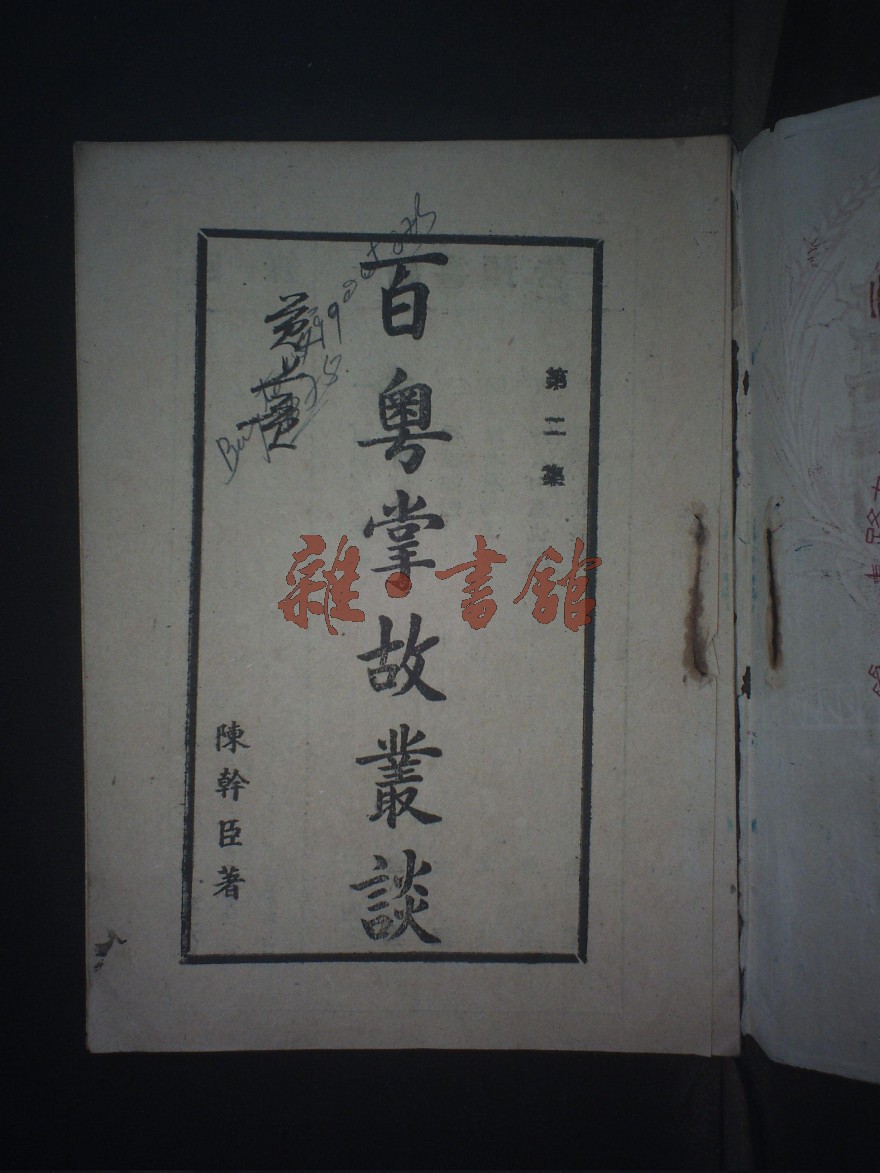 第二集
百粵掌故叢談
陳幹臣著
雜·書館